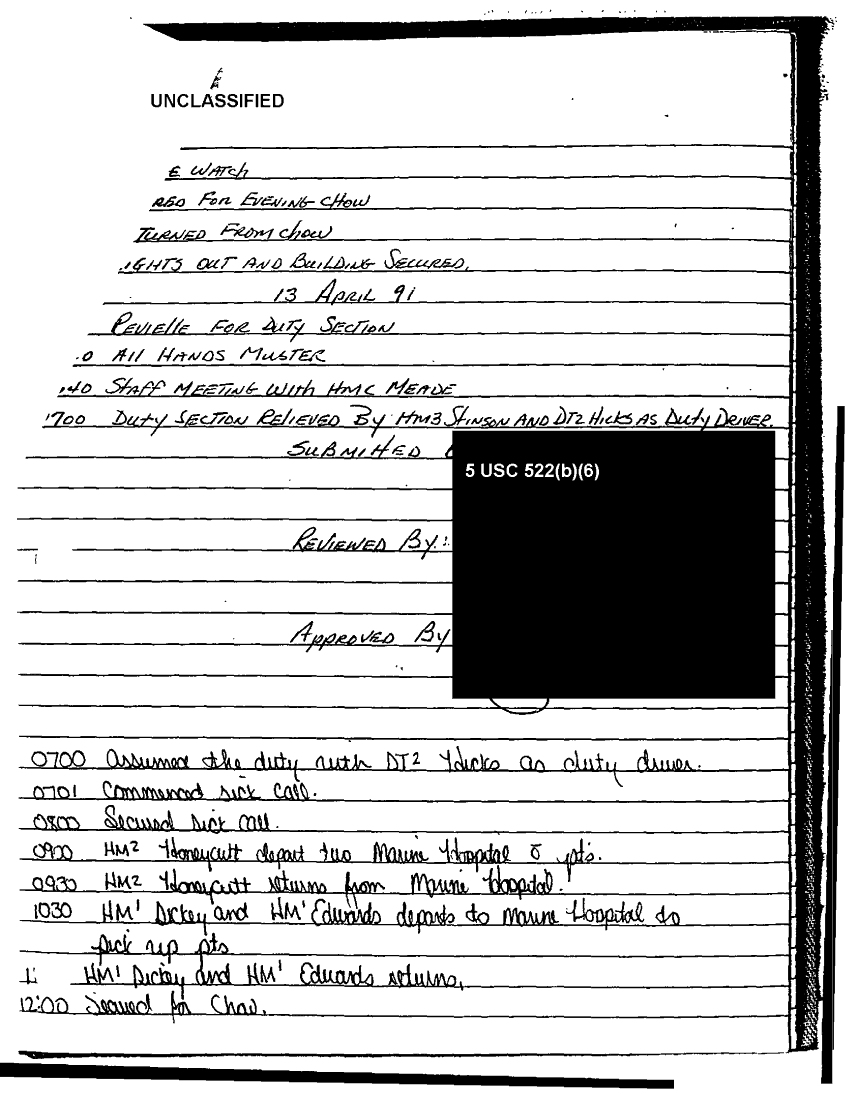 UNCLASSIFIED
E WATCH
RED FOR EVENING CHOW
TURNED FROM CHOW
IGHTS OUT AND BUILDING SECURED.
13 APRIL 91
REVIELLE FOR DUTY SECTION
0 All HANDS MUSTER
40 STAFF MEETING WITH HMC MEADE
1700 DUTY SECTION RELIEVED BY HM3 STINSON AND DT2 HICKS AS DUTY DRIVER.
SUBMITTED
5 USC 522(b)(6)
REVIEWED BY:
APPROVED BY
0700 Assumed the duty with DT2 Hicks as duty driver.
0701 Commenced sick call.
0800 Secured sick call.
0900 HM2 Honeycutt depart two Marine Hospital c̄ pts.
0930 HM2 Honeycutt returns from Marine Hospital.
1030 HM1 Dickey and HM1 Edwards departs to Marine Hospital to
pick up pts
1: HM1 Dickey and HM1 Edwards returns.
12:00 Secured for Chow.